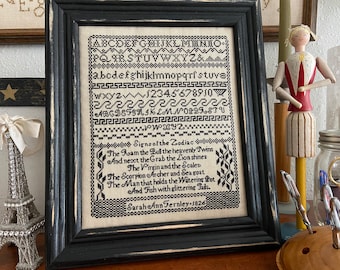 ABCDEFGHIJKLMNO
PQRSTUVWXYZ&
abcdefghijklmnopqrstuv
wxyz 12345678910
WXYZ
Signs of the Zodiac
The Ram the Bull the heavenly Twins
And next the Crab the Lion shines
The Virgin and the Scales
The Scorpion Archer and Sea goat
The Man that holds the Watering Pot
And Fish with glittering Tails.
Sarah Ann Fernley 1824